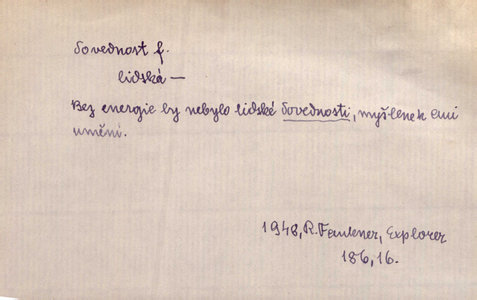 dovednost f.
lidská —
Bez energie by nebylo lidské dovednosti, myšlenek ani
umění.
1948, R. Faukner, Explorer
186,16.